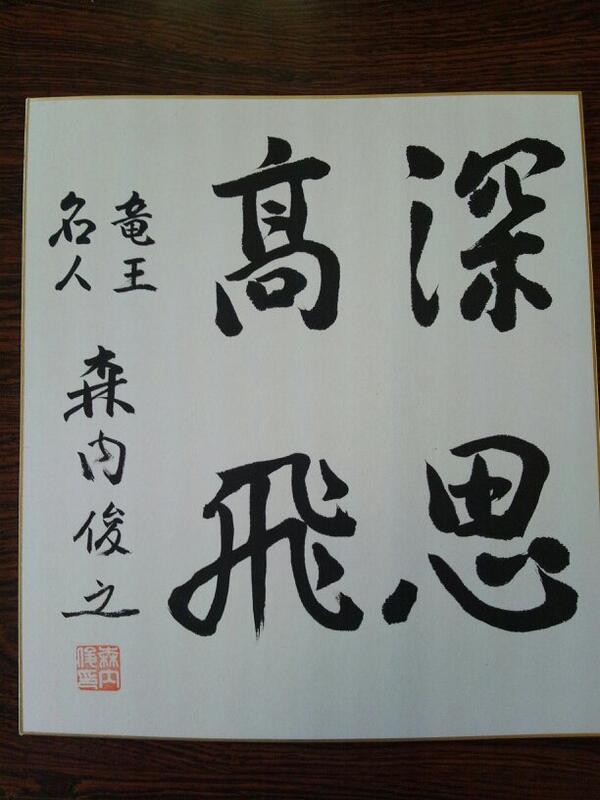 深思
髙飛
竜王
名人
森内俊之
森内
俊之